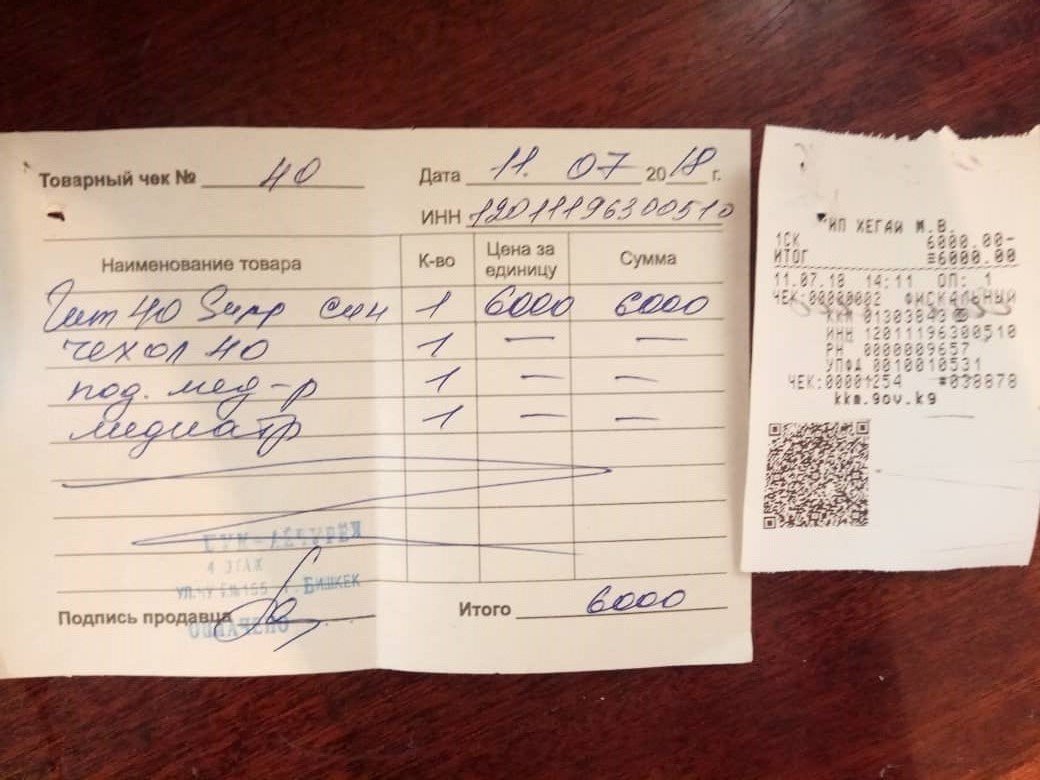 Товарный чек № 40 Дата 11. 07 2018 г.
ИНН 12011196300510
Наименование товара К-во Цена за единицу Сумма
Гит 40 син 1 6000 6000
чехол 40 1 — —
под. мед-р 1 — —
медиатр 1 — —
4 ЭТАЖ
БИШКЕК
Подпись продавца Итого 6000
ИП ХЕГАЙ М.В.
1СК 6000.00-
ИТОГ ≡6000.00
11.07.18 14:11 ОП: 1
ЧЕК:00000002 ФИСКАЛЬНЫЙ
ККМ
ИНН 12011196300510
РН 0000009657
УПФА 0010010531
ЧЕК:00001254 #038878
kkm.gov.kg